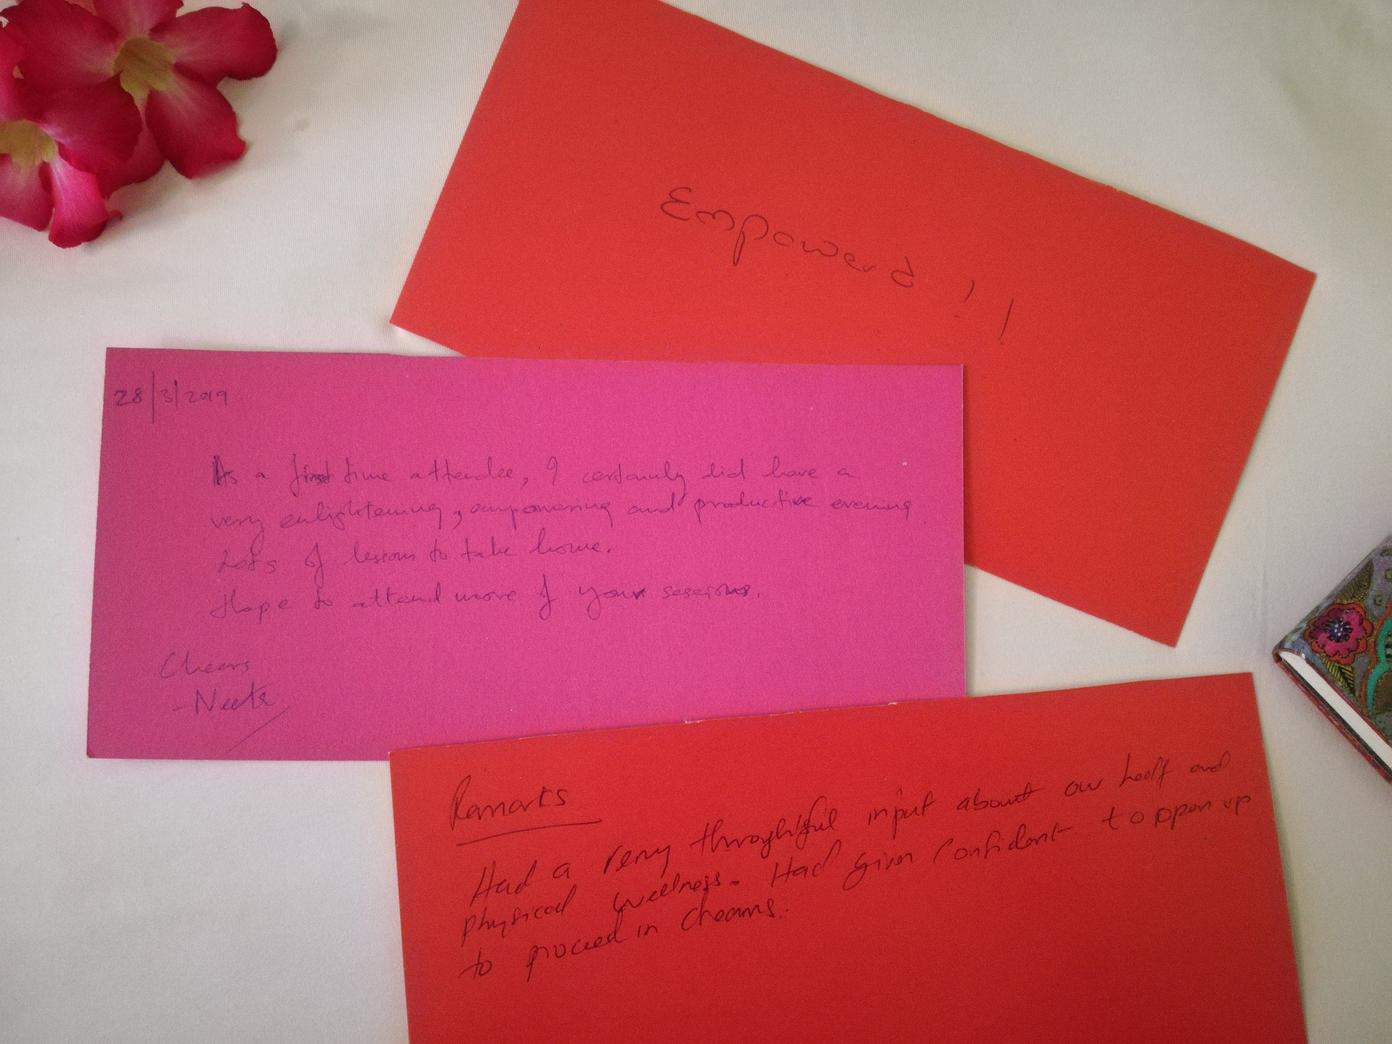 Empowerd !!
28/3/2019
As a first time attendee, I certainly did have a
very enlightening, empowering and productive evening.
Lots of lessons to take home.
Hope to attend more of your sessions.
Cheers
- Neeta
Remarks
Had a very throughtful input about our healf and
physical wellness. Had given confident to oppen up
to proceed in dreams.